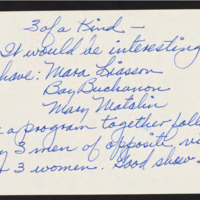 3 of a Kind -
It would be interesting
have: Mara Liasson
Bay Buchanon
Mary Matalin
a program together foll
3 men of opposite vi
3 women. Good show